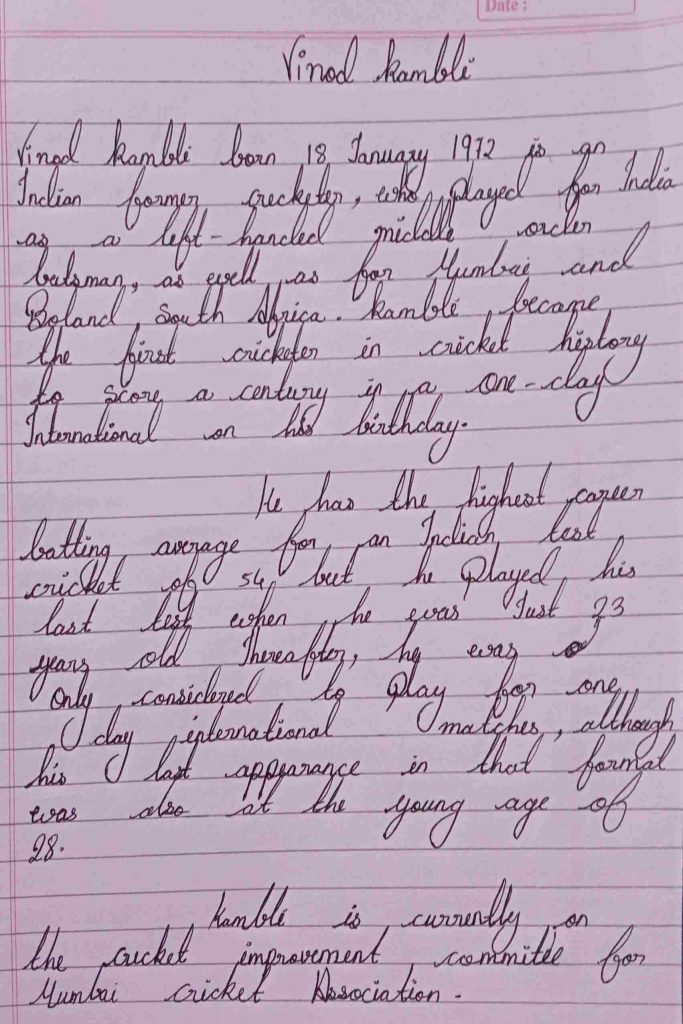 Date :
Vinod kambli
Vinod kambli born 18 January 1972 is an
Indian former crecketer, who played for India
as a left-handed middle order
batsman, as well as for Mumbai and
Boland, South Africa. kambli became
the first cricketer in cricket history
to score a century in a one-day
International on his birthday.
He has the highest career
batting average for an Indian test
cricket of 54, but he played his
last test when he was Just 23
years old. Thereafter, he was
Only considered to play for one
day international matches, although
his last appearance in that format
was also at the young age of
28.
kambli is currently on
the cricket improvement committe for
Mumbai cricket Association.